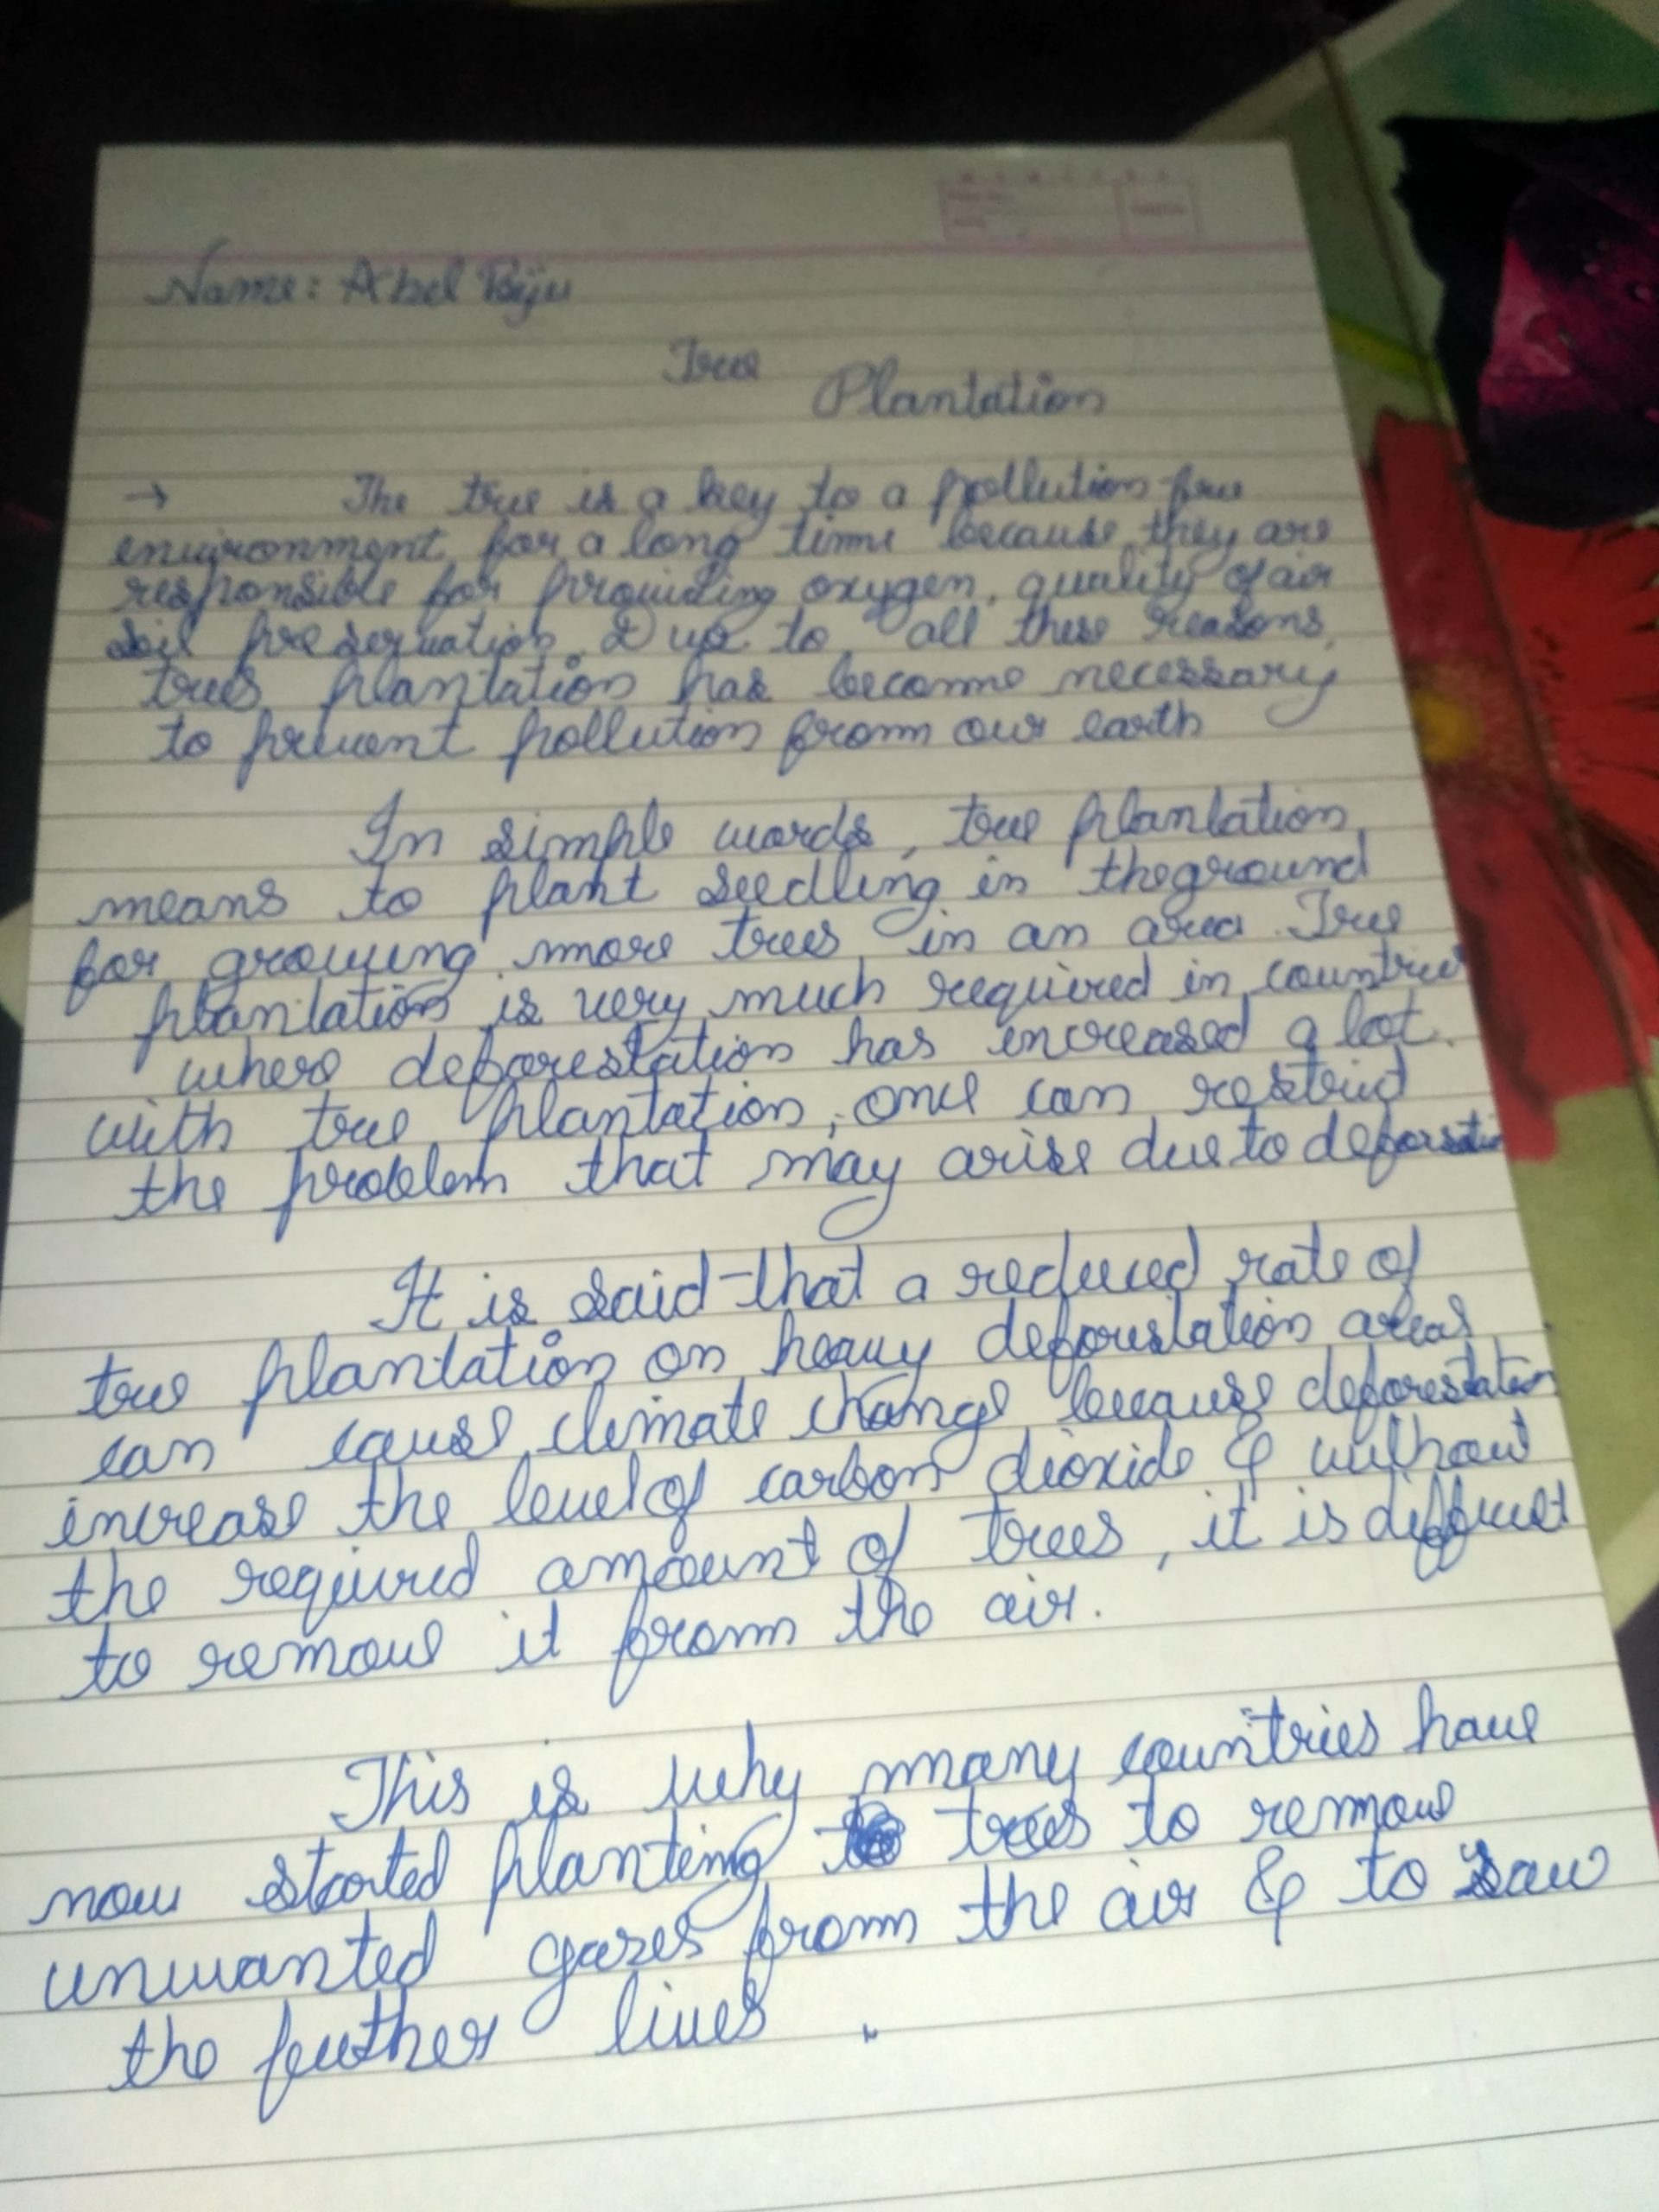 Name: Abel Biju
Tree
Plantation
→ The tree is a key to a pollution free
environment for a long time because they are
responsible for providing oxygen, quality of air
soil preservation & to all these reasons,
trees plantation has become necessary
to prevent pollution from our earth
In simple words, tree plantation
means to plant seedling in the ground
for growing more trees in an area. Tree
plantation is very much required in countries
where deforestation has increased a lot.
with tree plantation, one can restrict
the problem that may arise due to
It is said that a reduced rate of
tree plantation on heavy deforestation areas
can cause climate change because deforestation
increase the level of carbon dioxide & without
the required amount of trees, it is difficult
to remove it from the air.
This is why many countries have
now started planting trees to remove
unwanted gases from the air & to save
the futher lives.